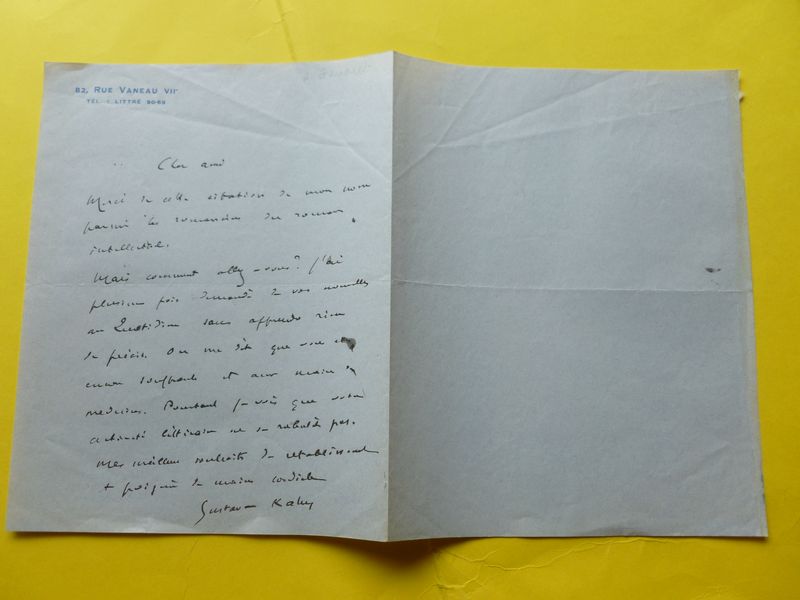 82, RUE VANEAU VIIᵉ
TÉL. : LITTRÉ 90-69
Cher ami
Merci de cette citation de mon nom
parmi les romanciers du roman
intellectuel.
Mais comment allez-vous ? J'ai
plusieurs fois demandé de vos nouvelles
au Quotidien sans apprendre rien
de précis. On me dit que vous
encore souffrant et aux mains de
médecins. Pourtant je vois que votre
activité littéraire ne se ralentit pas.
Mes meilleurs souhaits de rétablissement
et poignée de mains cordiale
Gustave Kahn